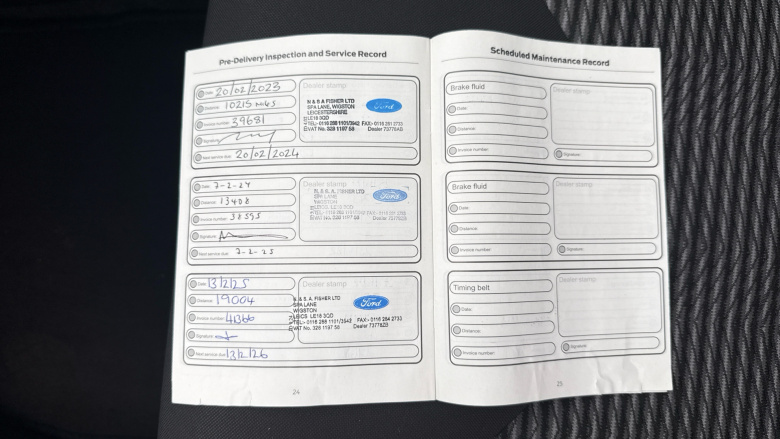 Pre-Delivery Inspection and Service Record
Date: 20/02/2023
Distance: 10215 miles
Invoice number: 39681
Signature:
Next service due: 20/02/2024
Dealer stamp
N & S A FISHER LTD
SPA LANE, WIGSTON
LEICESTERSHIRE
LE18 3QD
TEL:- 0116 288 1101/3942 FAX:- 0116 281 2733
VAT No. 328 1197 58 Dealer 73778AB
Ford
Date: 7-2-24
Distance: 13408
Invoice number: 38595
Signature:
Next service due: 7-2-25
Dealer stamp
N. & S. A. FISHER LTD
SPA LANE
WIGSTON
LEICS. LE18 3QD
VAT No. 328 1197 58
Ford
Date: 13/2/25
Distance: 19004
Invoice number: 41366
Signature:
Next service due: 13/2/26
Dealer stamp
N. & S. A. FISHER LTD
SPA LANE
WIGSTON
LEICS LE18 3QD
TEL:- 0116 288 1101/3942 FAX:- 0116 284 2733
VAT No. 328 1197 58 Dealer 73778ZB
Ford
24
Scheduled Maintenance Record
Brake fluid
Date:
Distance:
Invoice number:
Dealer stamp
Signature:
Brake fluid
Date:
Distance:
Invoice number:
Dealer stamp
Signature:
Timing belt
Date:
Distance:
Invoice number:
Dealer stamp
Signature:
25